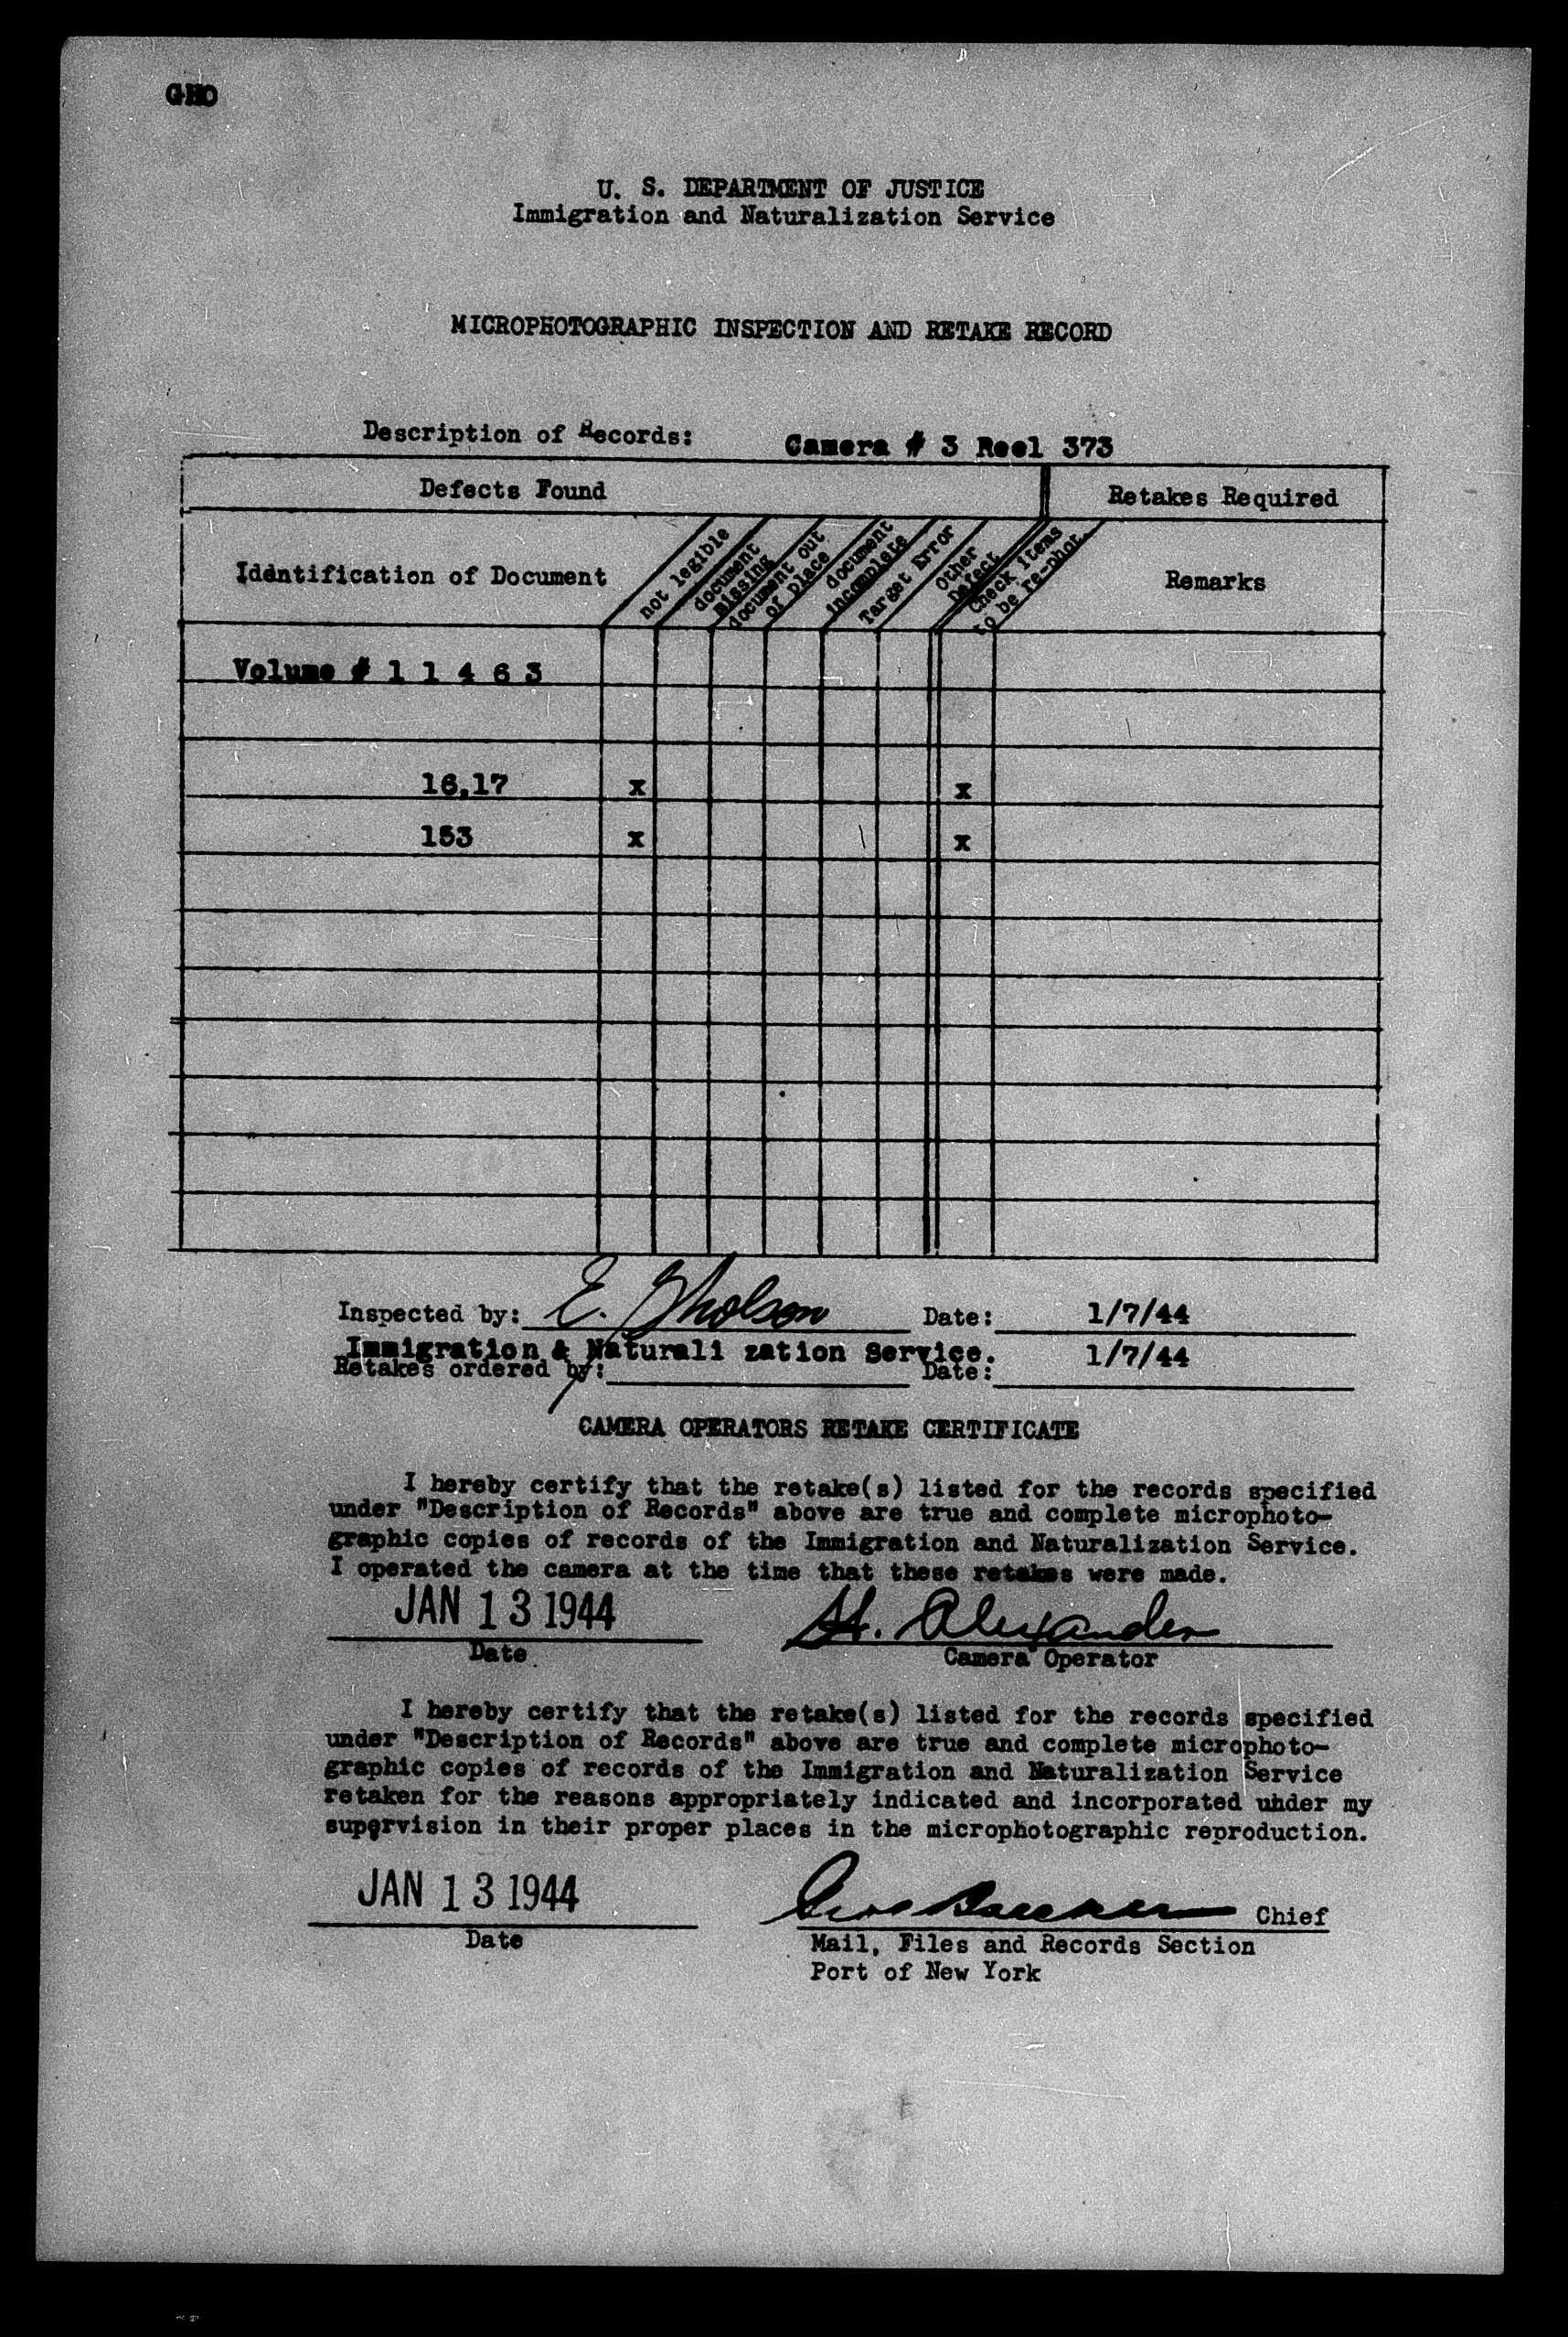 GHO
U. S. DEPARTMENT OF JUSTICE
Immigration and Naturalization Service
MICROPHOTOGRAPHIC INSPECTION AND RETAKE RECORD
Description of Records: Camera # 3 Reel 373
Defects Found Retakes Required
Identification of Document
not legible
document missing
document out of place
document incomplete
Target Error
Other Defect
Check items to be re-phot.
Remarks
Volume # 1 1 4 6 3
16,17 x x
153 x x
Inspected by: E. Gholson Date: 1/7/44
Immigration & Naturali zation Service. 1/7/44
Retakes ordered by: Date:
CAMERA OPERATORS RETAKE CERTIFICATE
I hereby certify that the retake(s) listed for the records specified
under "Description of Records" above are true and complete microphoto-
graphic copies of records of the Immigration and Naturalization Service.
I operated the camera at the time that these retakes were made.
JAN 13 1944 H. Alexander
Date Camera Operator
I hereby certify that the retake(s) listed for the records specified
under "Description of Records" above are true and complete microphoto-
graphic copies of records of the Immigration and Naturalization Service
retaken for the reasons appropriately indicated and incorporated under my
supervision in their proper places in the microphotographic reproduction.
JAN 13 1944 Chief
Date Mail, Files and Records Section
Port of New York